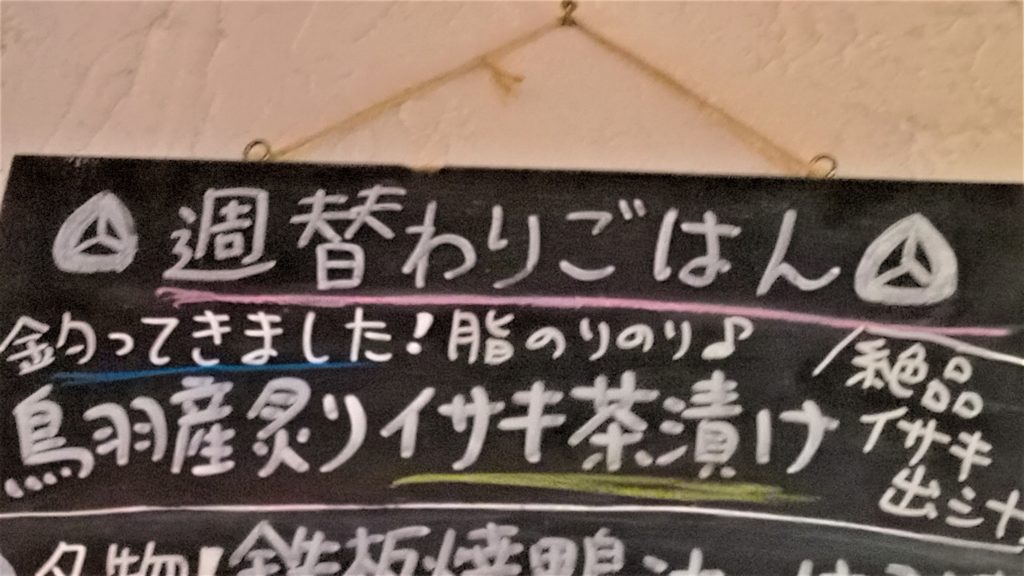 週替わりごはん
釣ってきました!脂のりのり♪
鳥羽産炙りイサキ茶漬け
絶品
イサキ
出シ汁
名物!鉄板焼鴨